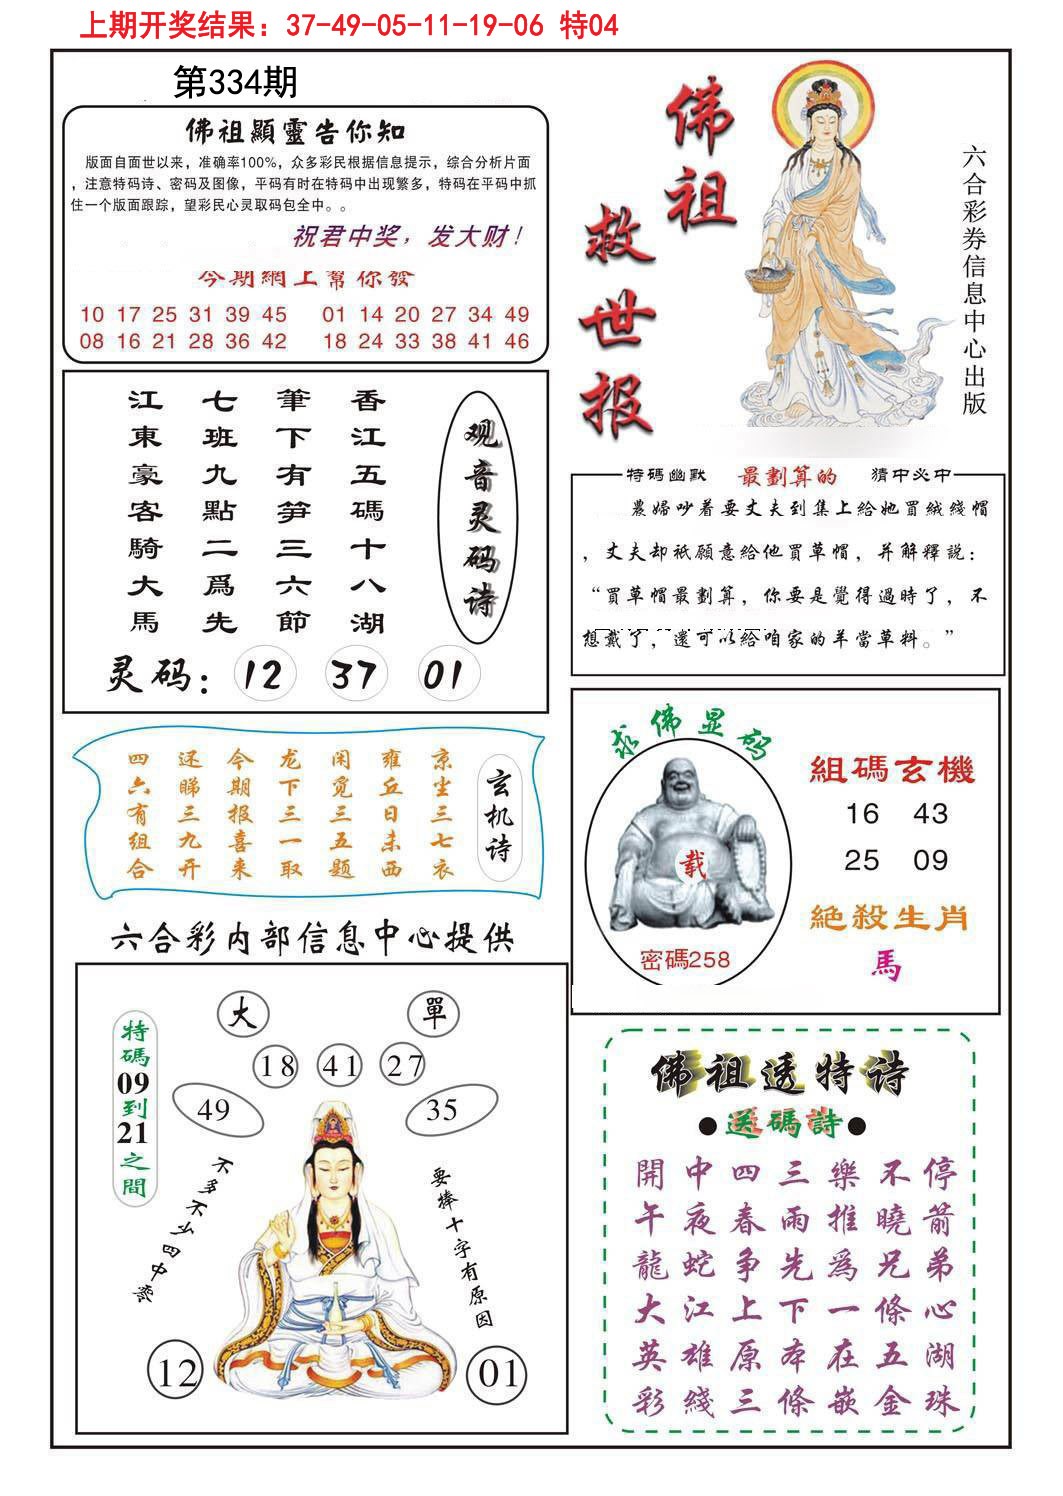 上期开奖结果：37-49-05-11-19-06 特04
第334期
佛祖顯靈告你知
版面自面世以来，准确率100%，众多彩民根据信息提示，综合分析片面
，注意特码诗、密码及图像，平码有时在特码中出现繁多，特码在平码中抓
住一个版面跟踪，望彩民心灵取码包全中。。
祝君中奖，发大财！
今期網上幫你發
10 17 25 31 39 45 01 14 20 27 34 49
08 16 21 28 36 42 18 24 33 38 41 46
佛祖
救世报
六合彩券信息中心出版
观音灵码诗
香江五碼十八湖
筆下有笋三六節
七班九點二爲先
江東豪客騎大馬
灵码：12 37 01
特碼幽默 最劃算的 猜中必中
農婦吵着要丈夫到集上給她買絨綫帽
，丈夫却衹願意給他買草帽，并解釋説：
“買草帽最劃算，你要是覺得過時了，不
想戴了，還可以給咱家的羊當草料。”
玄机诗
京尘三七衣
雍丘日未西
闲觅三五题
龙下三一取
今期报喜来
还睇三九开
四六有组合
求佛显码
载
密碼258
組碼玄機
16 43
25 09
絕殺生肖
馬
六合彩内部信息中心提供
大 單
18 41 27
49 35
特碼09到21之間
不多不少四中齊
要捧十字有原因
12 01
佛祖透特诗
●送碼詩●
開中四三樂不停
午夜春雨推曉箭
龍蛇争先爲兄弟
大江上下一條心
英雄原本在五湖
彩綫三條嵌金珠